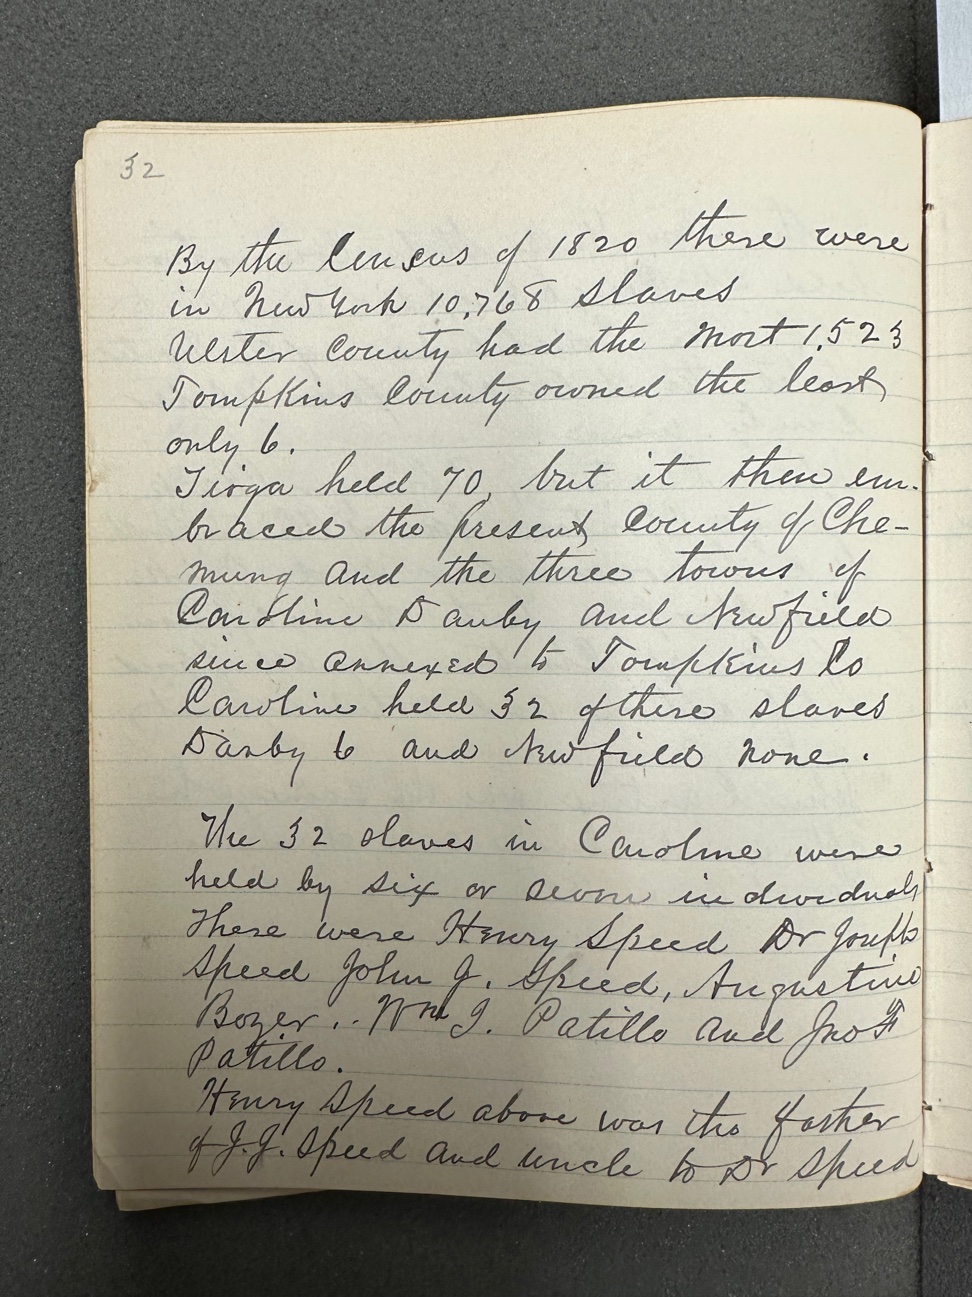 32
By the Census of 1820 there were
in New York 10,768 slaves
Ulster County had the most 1,523
Tompkins County owned the least,
only 6.
Tioga held 70, but it then em-
braced the present County of Che-
mung and the three towns of
Caroline Danby and Newfield
since annexed to Tompkins Co
Caroline held 32 of these slaves
Danby 6 and Newfield none.
The 32 slaves in Caroline were
held by six or seven individuals
These were Henry Speed Dr Joseph
Speed John J. Speed, Augustine
Boyer, Wm J. Patillo and Jno F
Patillo.
Henry Speed above was the father
of J.J. Speed and uncle to Dr Speed